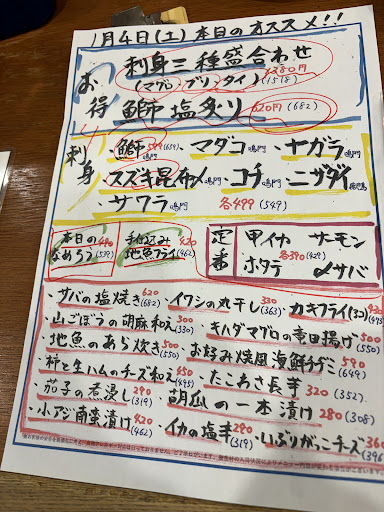 1月4日(土)本日のオススメ!!
お得
刺身三種盛合わせ
(マグロ ブリ タイ) 1380円(1518)
鰤塩炙り 620円(682)
刺身
・鰤 鳴門 599(659) ・マダコ 鳴門 ・ヤガラ 鳴門
・スズキ昆布〆 鳴門 ・コチ 鳴門 ・ニザダイ
・サワラ 鳴門 各499(549)
本日のなめろう 490(539)
手仕込み地魚フライ 420(462)
定番
甲イカ サーモン
各390(429)
ホタテ 〆サバ
・サバの塩焼き 620(682) ・イワシの丸干し 330(363) ・カキフライ(3コ)
・山ごぼうの胡麻和え 300(330) ・キハダマグロの竜田揚げ 500(550)
・地魚のあら炊き 500(550) ・お好み焼風海鮮チヂミ 590(649)
・柿と生ハムのチーズ和え 450(495) ・たこわさ長芋 320(352)
・茄子の煮浸し 290(319) ・胡瓜の一本漬け 280(308)
・小アジ南蛮漬け 420(462) ・イカの塩辛 290(319) ・いぶりがっこチーズ 360(396